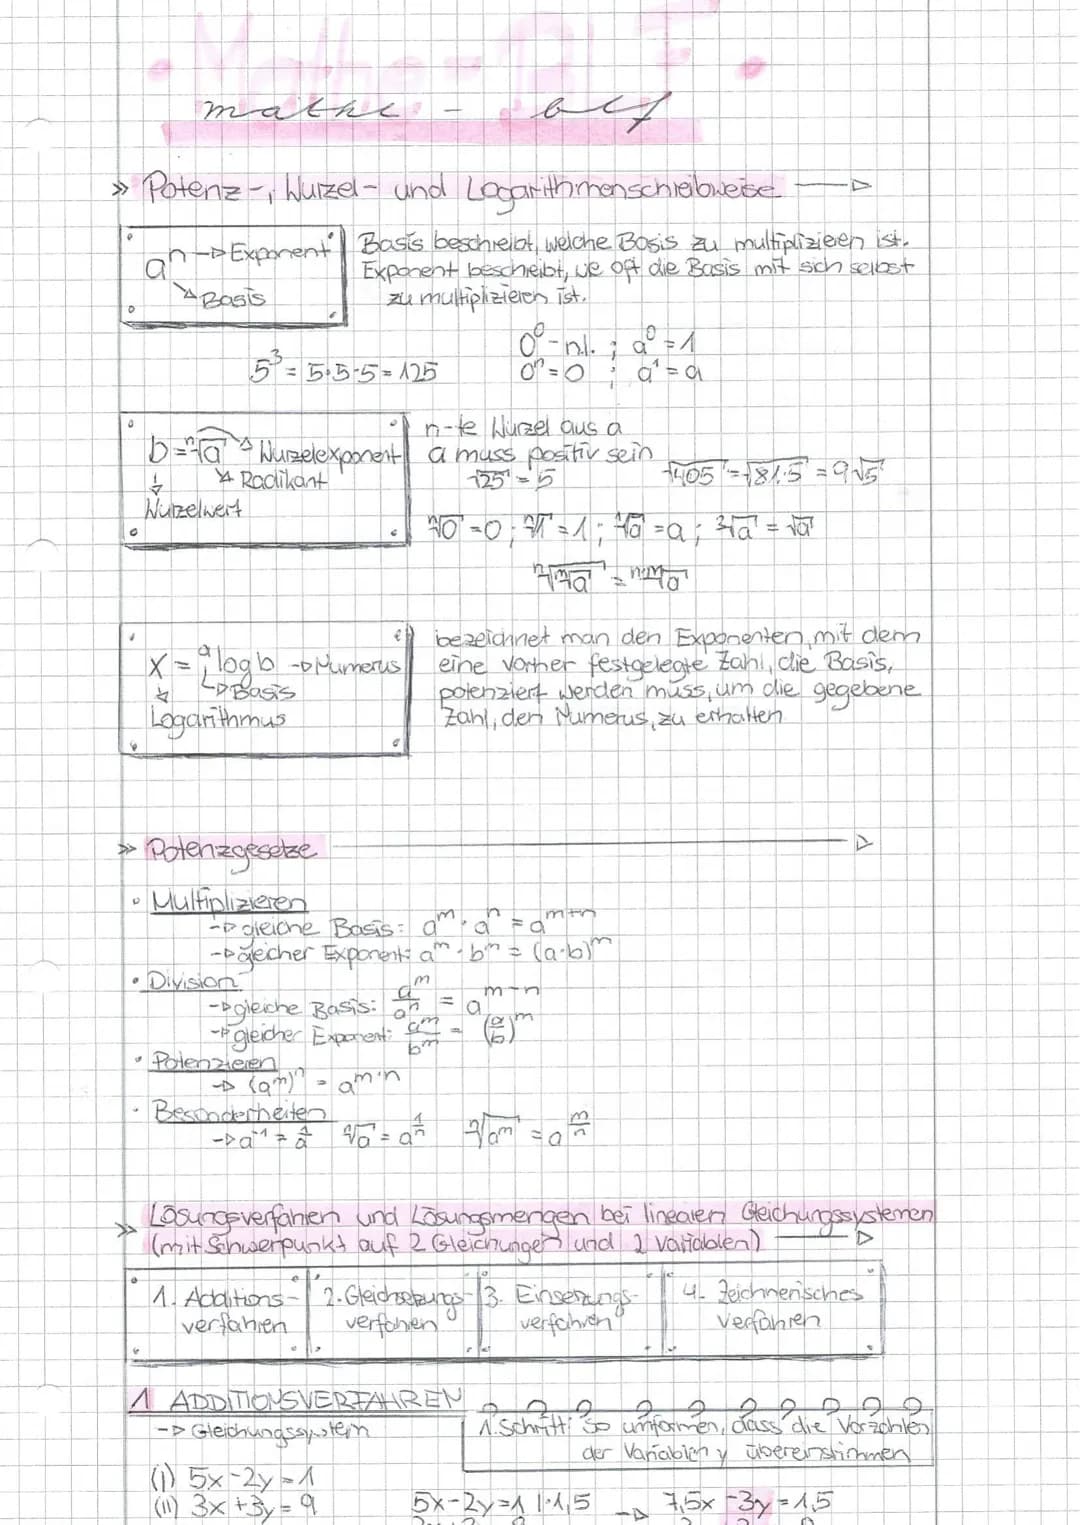 Mathe - BLF
mathe - blf
» Potenz-, Wurzel- und Logarithmenschreibweise
aⁿ → Exponent
Basis
Basis beschreibt, welche Basis zu multiplizieren ist.
Exponent bescheibt, wie oft die Basis mit sich selbst
zu multiplizieren ist.
5³ = 5·5·5 = 125
0⁰ - n.l. ; a⁰ = 1
0ⁿ = 0 ; a¹ = a
b = ⁿ√a Wurzelexponent
Radikant
Wurzelwert
n-te Wurzel aus a
a muss positiv sein
√25 = 5
√405 = √81·5 = 9√5
ⁿ√0 = 0 ; ⁿ√1 = 1 ; ¹√a = a ; ²√a = √a
x = ᵃlog b → Numerus
Basis
Logarithmus
bezeichnet man den Exponenten, mit dem
eine vorher festgelegte Zahl, die Basis,
potenziert werden muss, um die gegebene
Zahl, den Numerus, zu erhalten
» Potenzgesetze
• Multiplizieren
→ gleiche Basis: aᵐ · aⁿ = aᵐ⁺ⁿ
→ gleicher Exponent: aᵐ · bᵐ = (a·b)ᵐ
• Division
→ gleiche Basis: aᵐ/aⁿ = aᵐ⁻ⁿ
→ gleicher Exponent: aᵐ/bᵐ = (a/b)ᵐ
• Potenzieren
→ (aᵐ)ⁿ = aᵐ·ⁿ
• Besonderheiten
→ a⁻¹ = 1/a ⁿ√a = a^(1/n) ⁿ√aᵐ = a^(m/n)
» Lösungsverfahren und Lösungsmengen bei linearen Gleichungssystemen
(mit Schwerpunkt auf 2 Gleichungen und 2 Variablen)
1. Additions-
verfahren
2. Gleichsetzungs-
verfahren
3. Einsetzungs-
verfahren
4. Zeichnerisches
Verfahren
1 ADDITIONSVERFAHREN
→ Gleichungssystem
1. Schritt: so umformen, dass die Vorzahlen
der Variablen y übereinstimmen
(I) 5x - 2y = 1
(II) 3x + 3y = 9
5x - 2y = 1 |·1,5 → 7,5x - 3y = 1,5